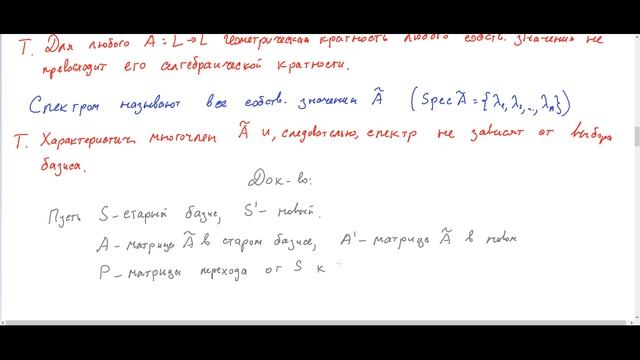 Т. Для любого A: L→L геометрическая кратность любого собств. значения не
превосходит его алгебраической кратности.
Спектром называют все собств. значения Ã (Spec Ã = {λ₁, λ₂, ..., λₙ})
Т. Характеристич. многочлен Ã и, следовательно, спектр не зависят от выбора
базиса.
Док-во:
Пусть S - старый базис, S' - новый.
A - матрица Ã в старом базисе, A' - матрица Ã в новом
P - матрица перехода от S к